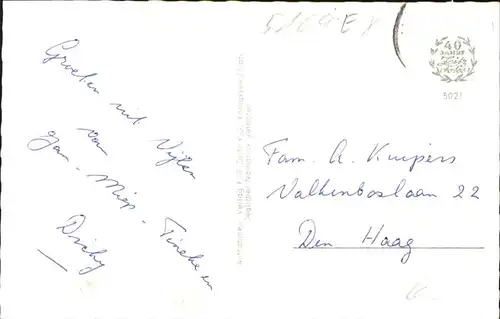 Groeten uit Vijlen
van
Jan - Miep - Tineke en
Dicky
40
JAHRE
5021
Fam. A. Kuipers
Valkenboslaan 22
Den Haag